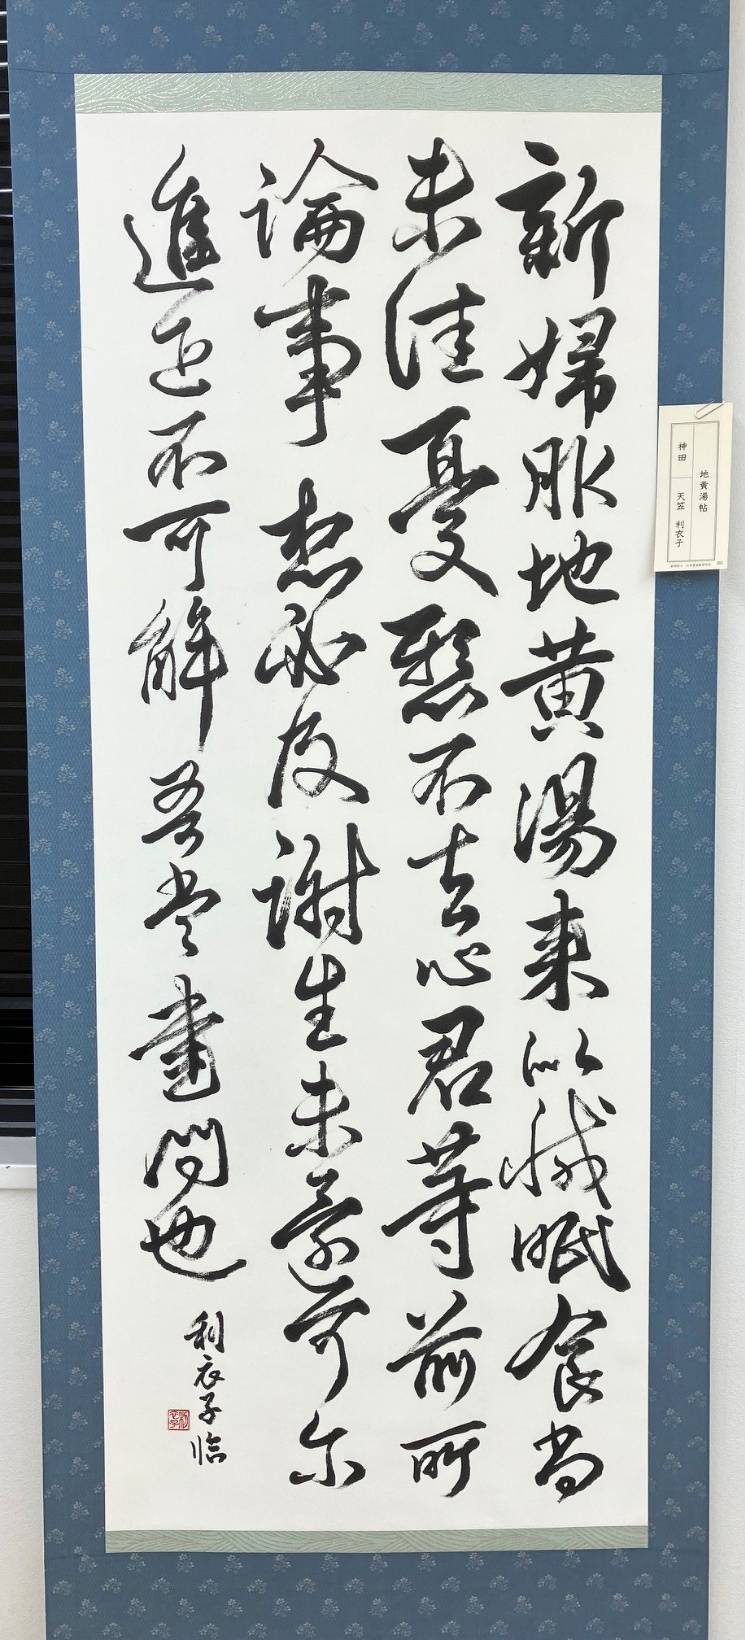 新婦服地黄湯来以減眠食尚
未佳憂懸不去心君等前所
論事想必及謝生未還可尓
進退不可解吾当書問也
利衣子臨
地黄湯帖
神田 天笠 利衣子